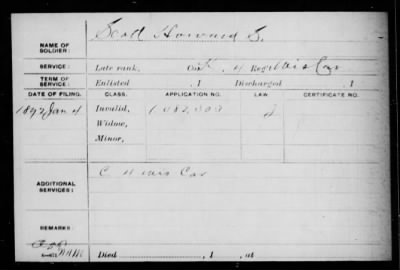 NAME OF SOLDIER: Scott Howard S.
SERVICE: Late rank, Co. K. 4 Reg't Wis Cav
TERM OF SERVICE: Enlisted , 1 Discharged , 1
DATE OF FILING. CLASS. APPLICATION NO. LAW. CERTIFICATE NO.
1892 Jan 4 Invalid,
Widow,
Minor,
ADDITIONAL SERVICES: C 4 Wis Cav
REMARKS:
Died , 1 , at